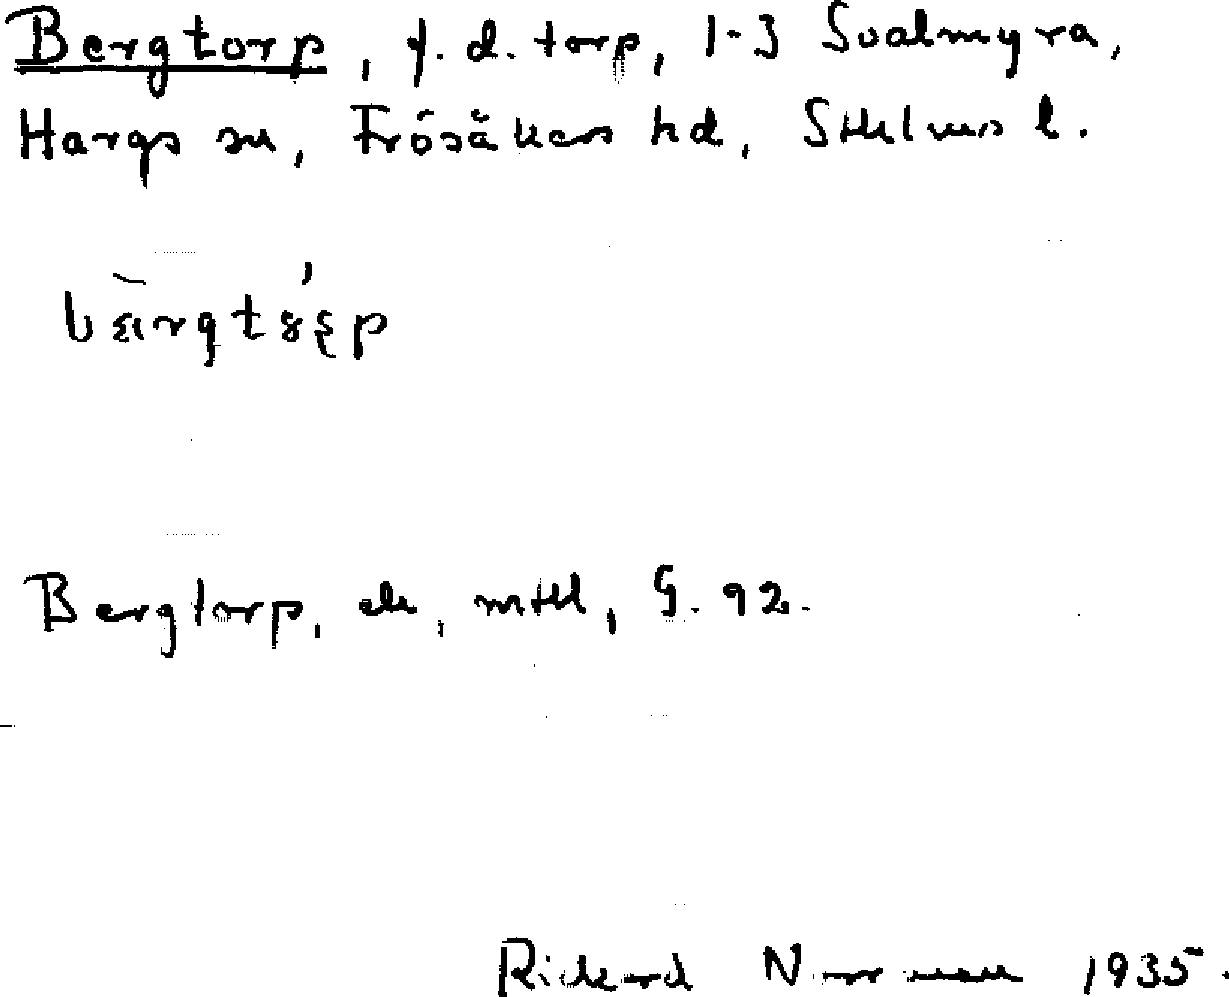 Bergtorp, f.d. torp, 1-3 Svalmyra,
Hargs sn, Frösåkers hd, Sthlms l.
Bergtorp, ek, G. 92.
Rickard Norrman 1935.